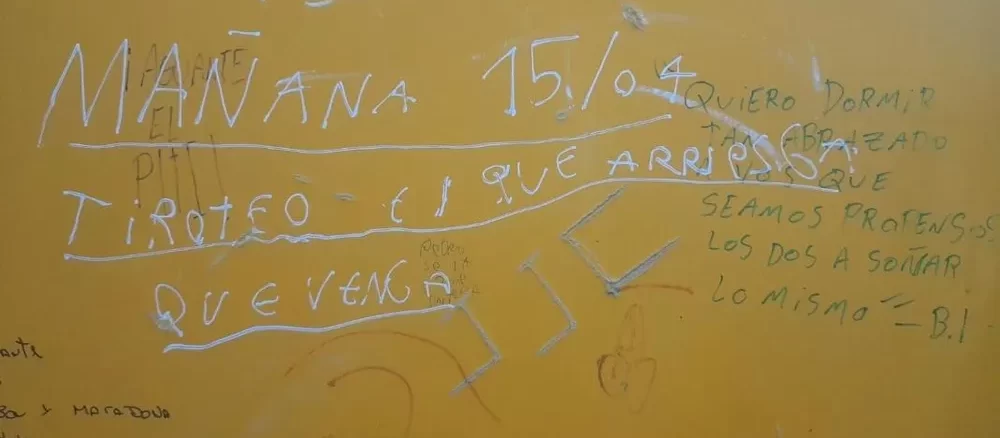 MAÑANA 15/04
TIROTEO - El QUE ARRIESGA
QUE VENGA
AGUANTE
EL
QUIERO DORMIR
TAN ABRAZADO
A VOS QUE
SEAMOS PROPENSOS
LOS DOS A SOÑAR
LO MISMO" - B.I
Y MARADONA